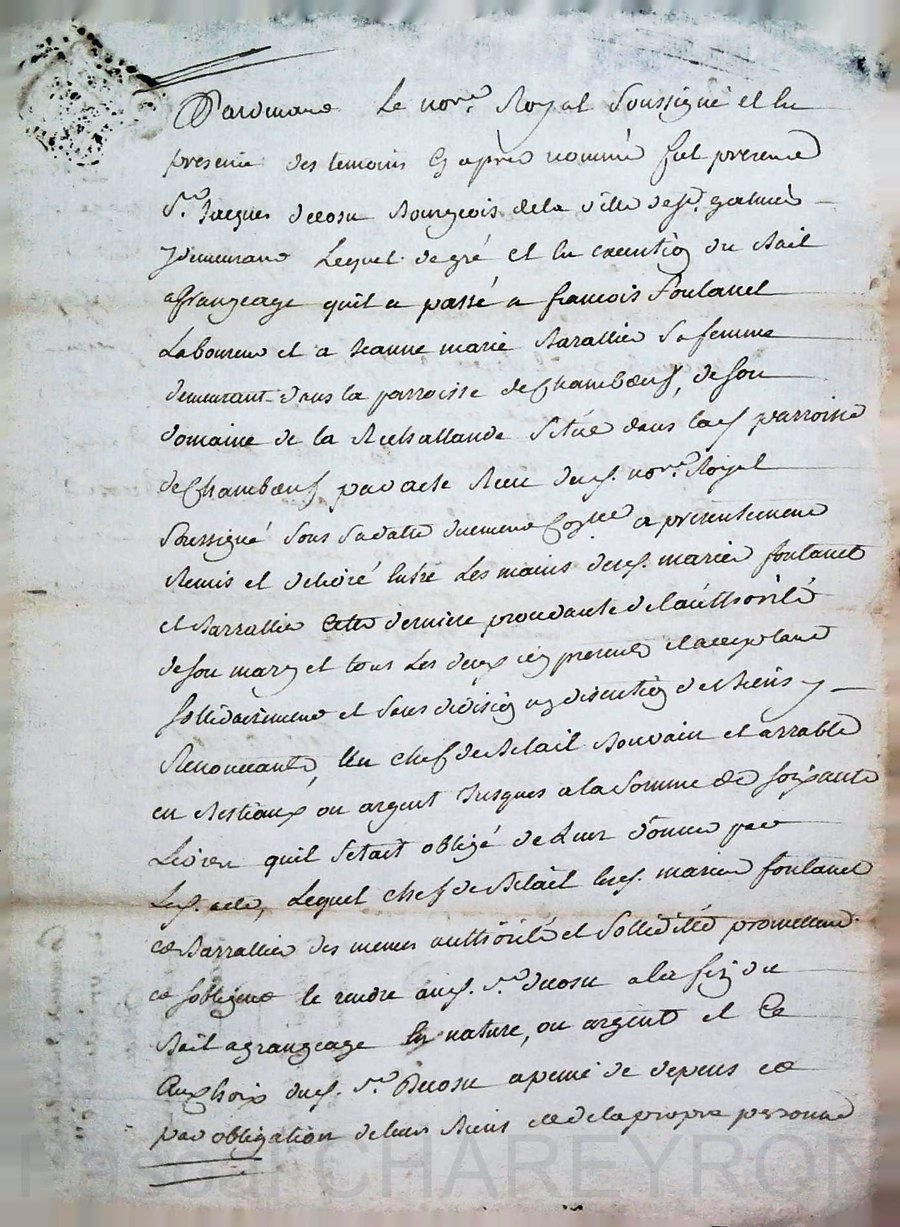 Pardevant Le nore. Royal Soussigné et En
presence des temoins Cy après nommés fut present
Sr. Jacques Decosu Bourgeois de la ville de St. galmier
y demeurant Lequel de gré et En execution du Bail
a Grangeage quil a passé a francois Foutanel
Laboureur et a Jeanne marie Barallier Sa femme
demeurant dans la parroisse de Chambœuf, de son
domaine de la Situé dans lad. parroisse
de Chambœuf par acte Recu dud. nore. Royal
Soussigné Sous Sa datte a presentement
Remis et delivré Entre Les mains desd. mariés foutanel
et Barrallier Cette derniere procedante de l'authôrité
de son mary et tous Les deux icy presents et acceptant
Sollidairement et Sans division ny discution de Biens y
Renoncants, Un chef de Betail Bouvain et arrable
en Bestiaux ou argent Jusques a la Somme de soixante
Livres quil s'etait obligé de Leur donner par
Led. acte, Lequel chef de Betail Lesd. mariés foutanel
et Barrallier des memes authôrité et Sollidité promettent
et s'obligent le rendre aud. Sr. Decosu a la fin du
Bail a grangeage En nature, ou argent et Ce
Au Choix dud. Sr. Decosu a peine de depens et
par obligation de leurs Biens et de la propre personne
Pascal CHAREYRON